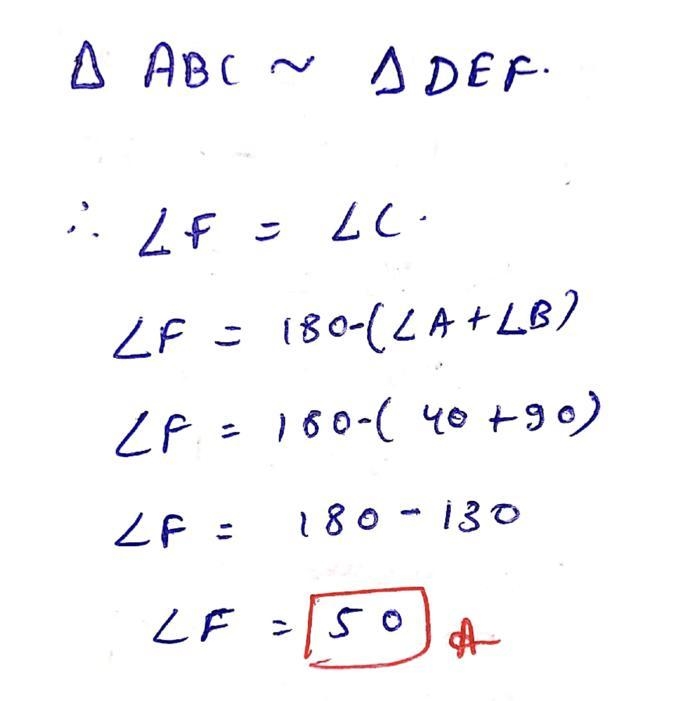 Δ ABC ~ Δ DEF.
∴ ∠F = ∠C.
∠F = 180-(∠A+∠B)
∠F = 180-( 40 +90)
∠F = 180 - 130
∠F = 50